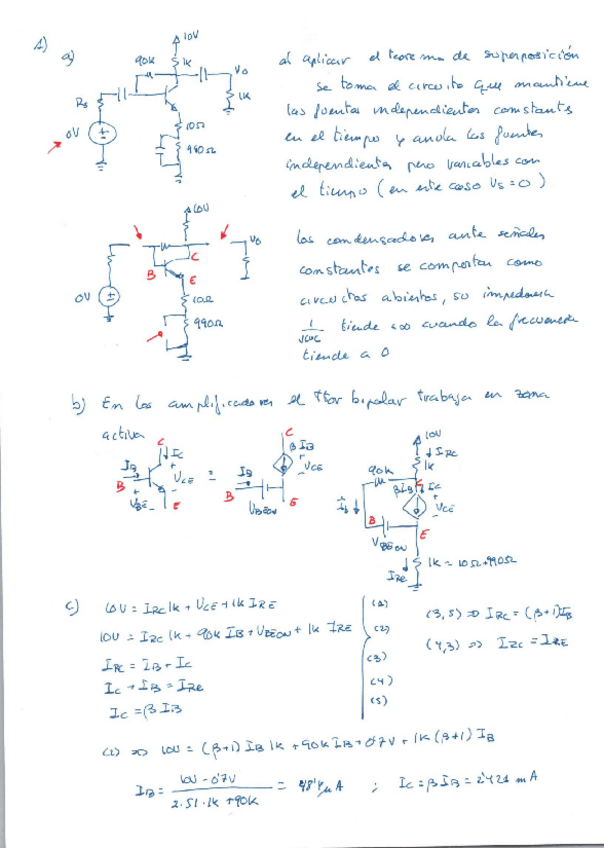 1)
a)
10V
90k
1k
Vo
1k
Rs
0V
10Ω
990Ω
al aplicar el teorema de superposición
se toma el circuito que mantiene
las fuentes independientes constantes
en el tiempo y anula las fuentes
independientes pero variables con
el tiempo (en este caso Vs=0)
10V
Vo
C
B
E
0V
10Ω
990Ω
los condensadores ante señales
constantes se comportan como
circuitos abiertos, su impedancia
1/jωc tiende a ∞ cuando la frecuencia
tiende a 0
b) En los amplificadores el ttor bipolar trabaja en zona
activa
C
IB
Ic
+
VCE
-
B
+
VBE -
E
=
C
βIB
+
VCE
-
IB
B
VBEON
E
10V
IRC
1k
90k
C
βIB
Ic
+
VCE
-
Ib
B
E
VBEON
IRe
1k = 10Ω+990Ω
c)
10V = IRC 1k + VCE + 1k IRE (1)
10V = IRC 1k + 90k IB + VBEON + 1k IRE (2)
IRC = IB + Ic (3)
Ic + IB = IRe (4)
Ic = β IB (5)
(3,5) ⇒ IRC = (β+1)IB
(4,3) ⇒ IRC = IRE
(2) ⇒ 10V = (β+1) IB 1k + 90k IB + 0'7V + 1k (β+1) IB
IB = (10V - 0'7V) / (2·51·1k + 90k) = 48'4 μA ; Ic = β IB = 2'421 mA